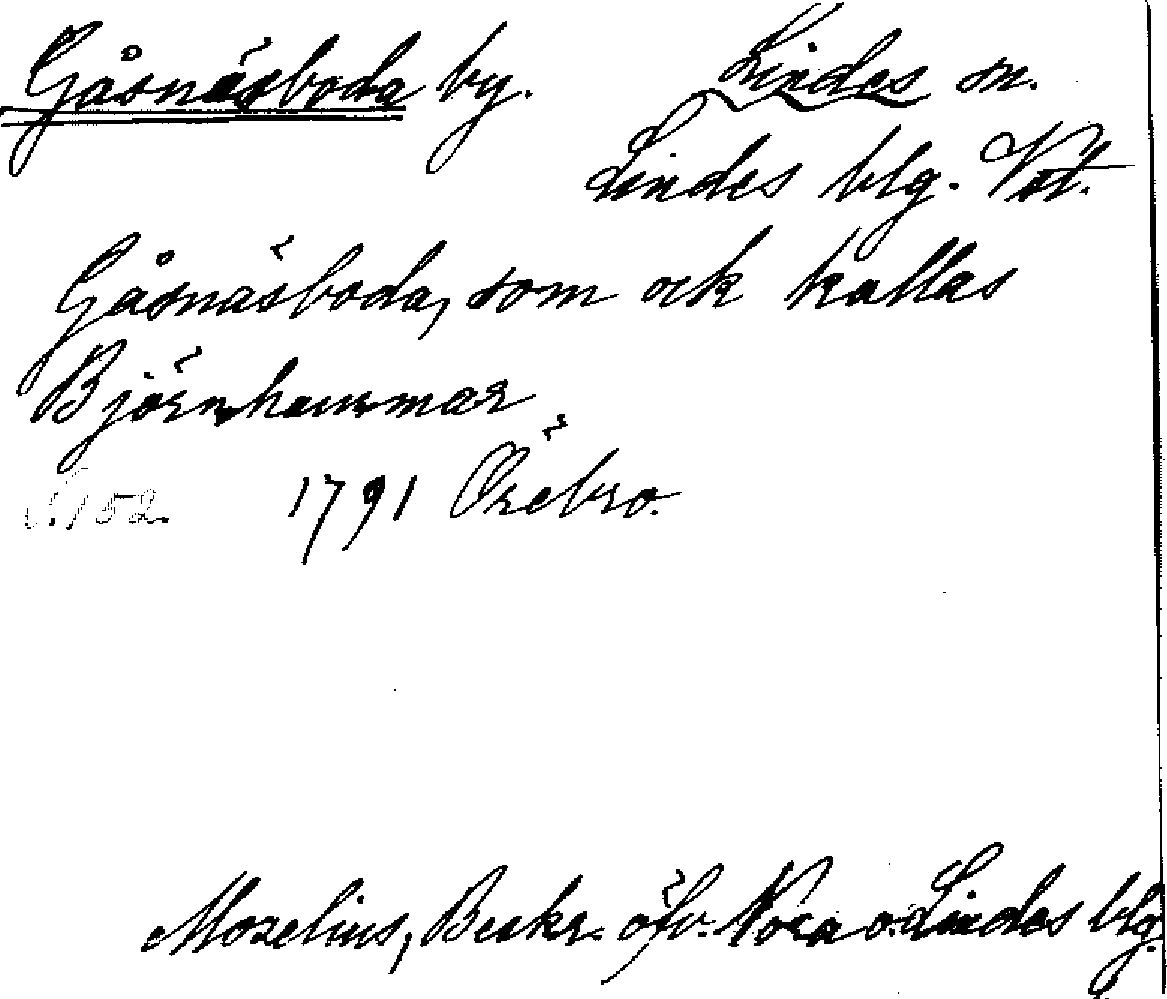 Gåsnäsboda by. Lindes sn.
Lindes blg. Vstm.
Gåsnäsboda, som ock kallas
Björnhammar
S. 152. 1791 Örebro.
Morelius, Beskr. öfv. Nora o. Lindes blg.